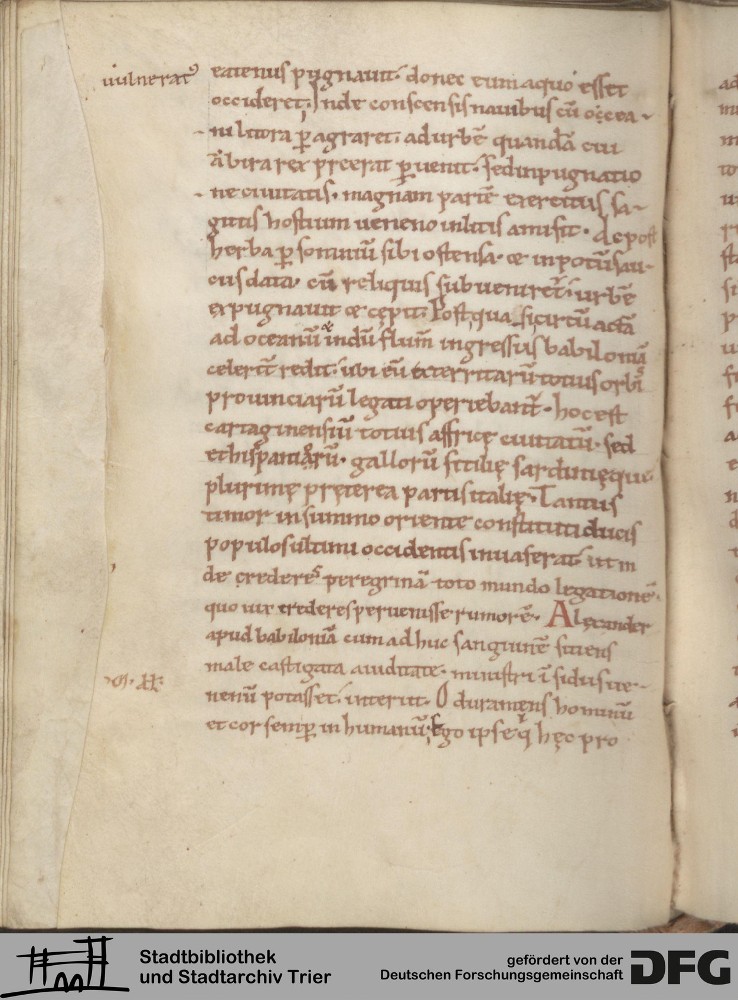 uulneratꝰ
eatenus pugnauit. donec eum a quo esset
occideret. Inde conscensis nauibus cū occea-
ni litora ꝑagraret. ad urbē quandā cui
ābira rex preerat ꝑuenit. Sed in pugnatio
ne ciuitatis. magnam partē exercitus sa-
gittis hostium ueneno inlitis amisit. Ac post
herba ꝑ somniū sibi ostensa. & in potū sau-
ciis data. cū reliquis subueniret. urbē
expugnauit & cępit. Post qua
ad oceanū indū flum̄ ingressus babiloniā
celerit̄ redit. ubi eū exterritarū totius orbis
prouinciarū legati operiebant̄. hoc est
cartaginensiū totius affricę ciuitatū. sed
et hispaniarū. gallorū sicilię sardinięque.
plurimę pręterea partis italię. Tantus
timor in summo oriente constituti ducis
populos ultimi occidentis inuaserat. ut in
de crederes peregrinā toto mundo legationē.
quo uix crederes peruenisse rumorē. Alęxander
apud babiloniā cum adhuc sanguinē sitiens
male castigata auiditate. ministri īsidiis ue-
nenū potasset. interiit. O dura mens hominū
et cor semꝑ inhumanū. Ego ipse q̇ hęc pro
Stadtbibliothek
und Stadtarchiv Trier
gefördert von der
Deutschen Forschungsgemeinschaft
DFG